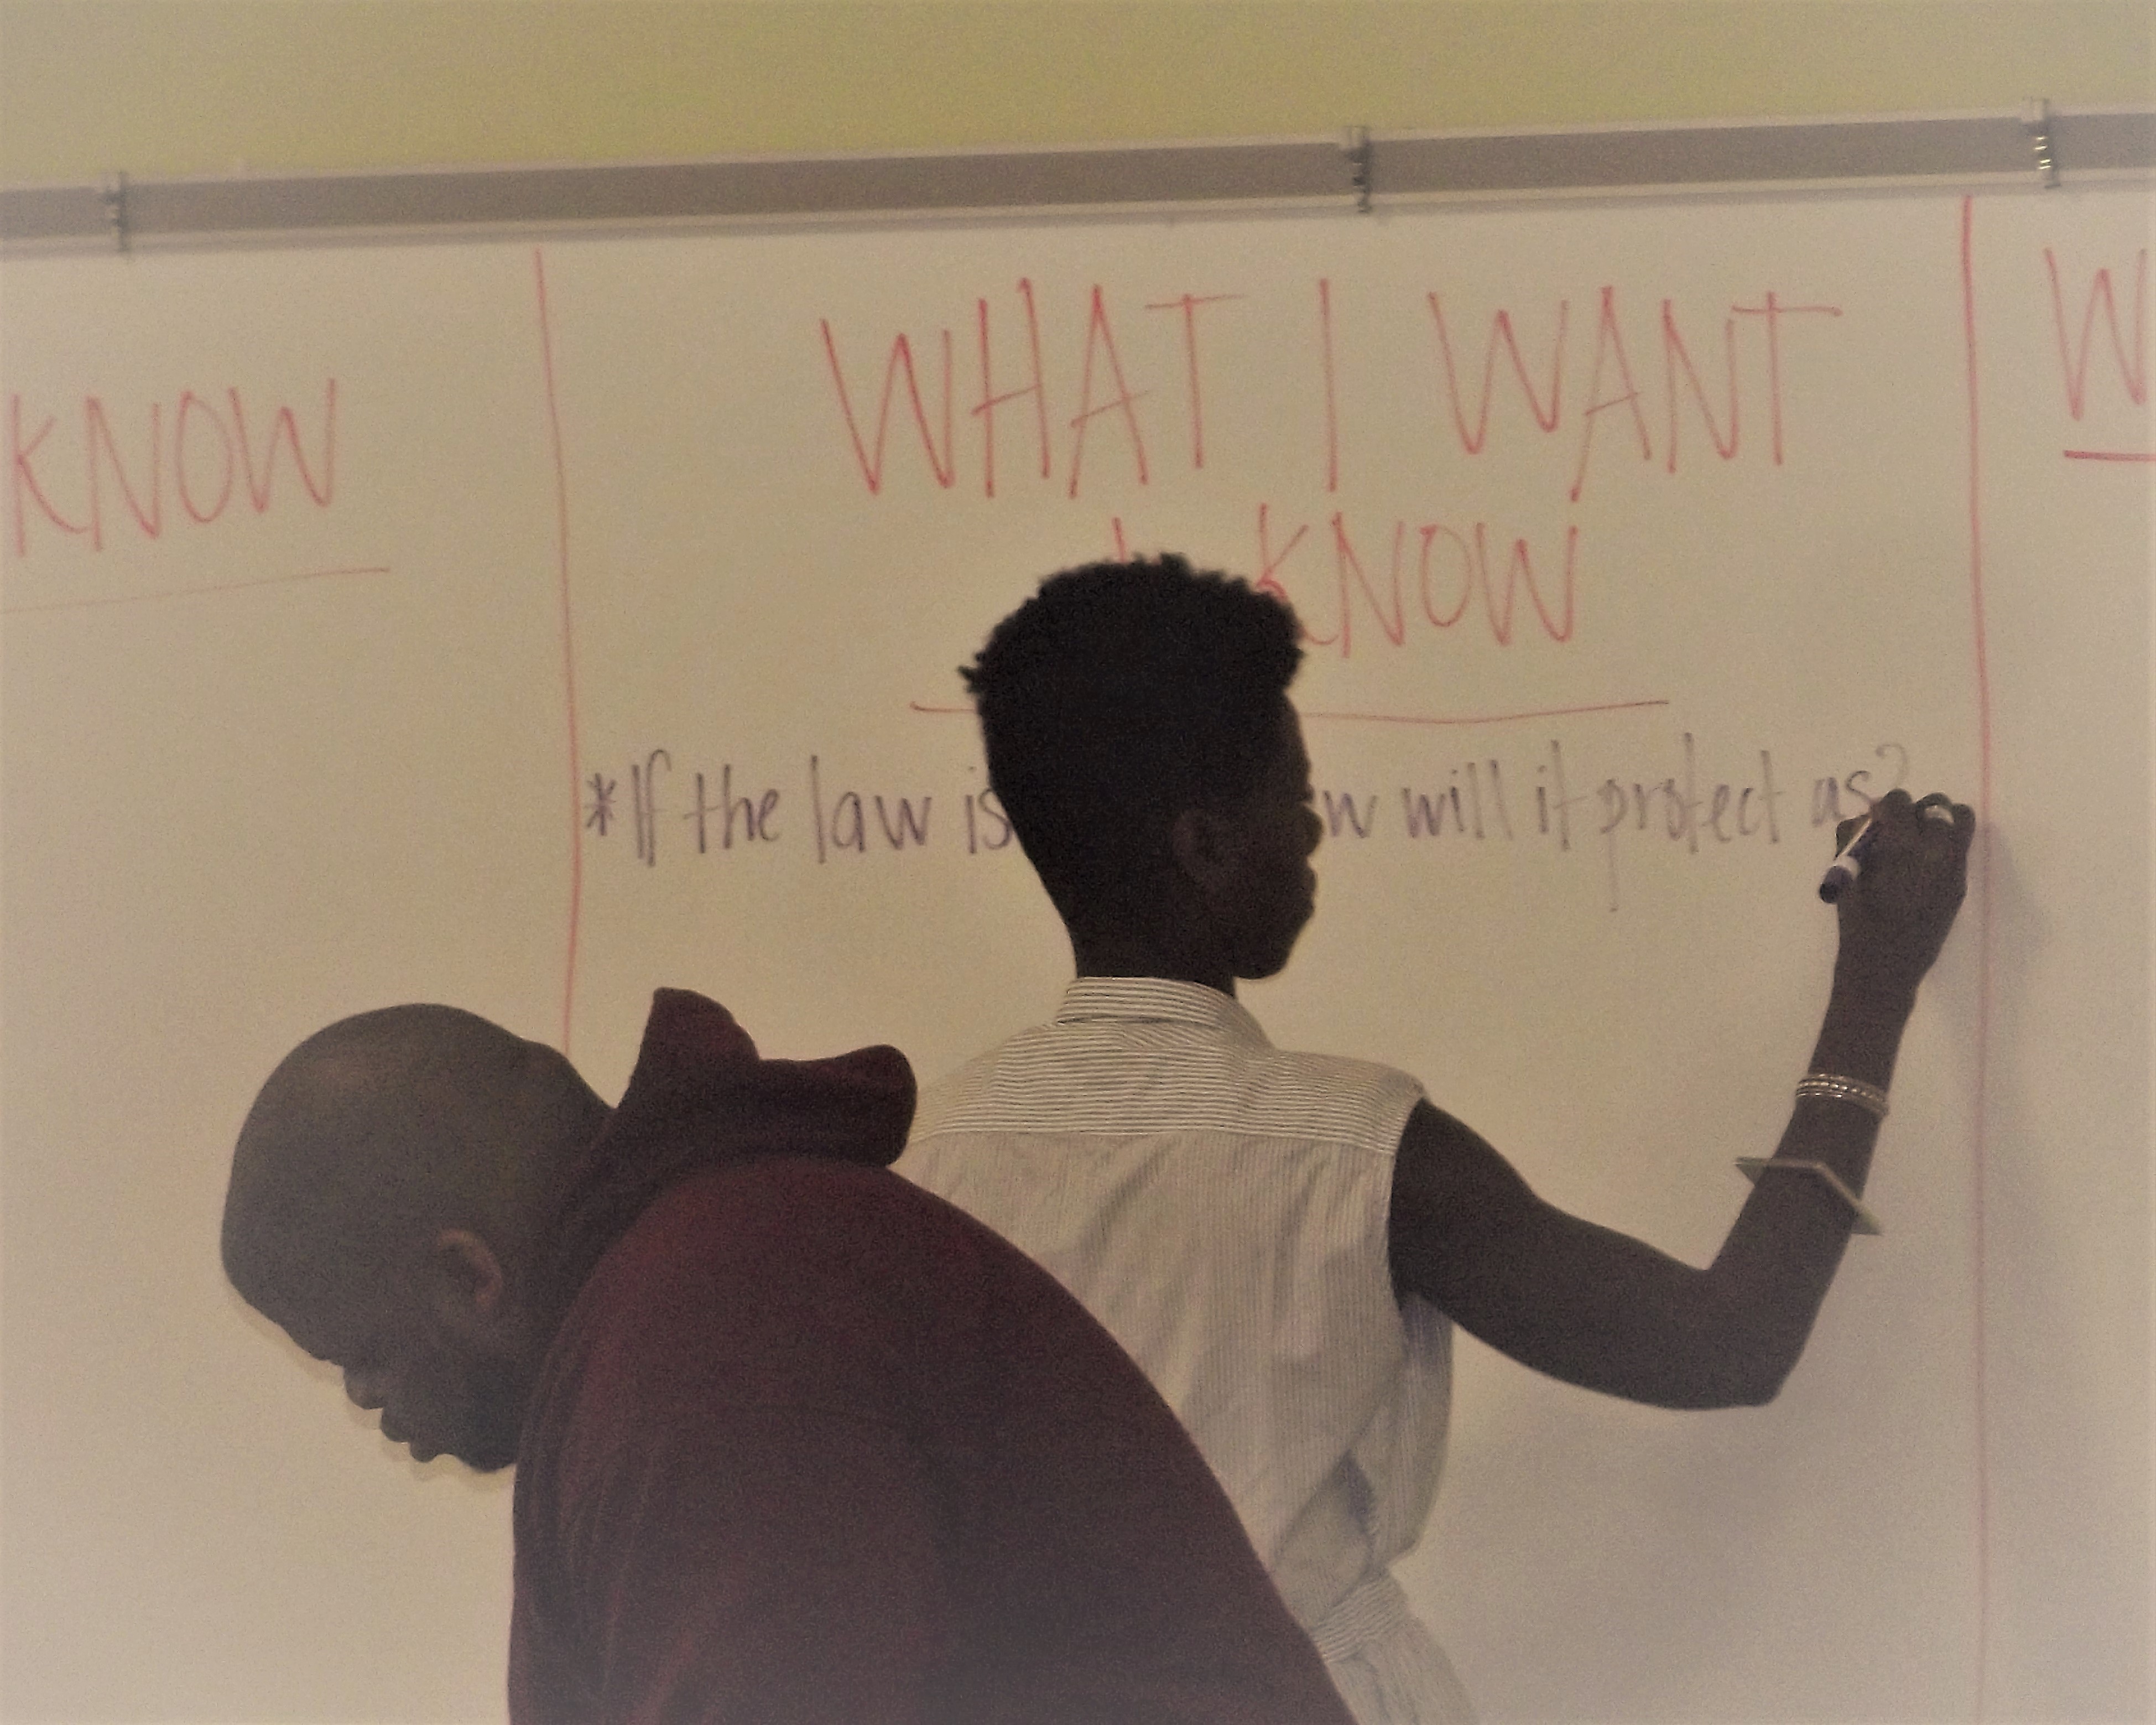 KNOW
WHAT I WANT
KNOW
*If the law is will it protect us?
W